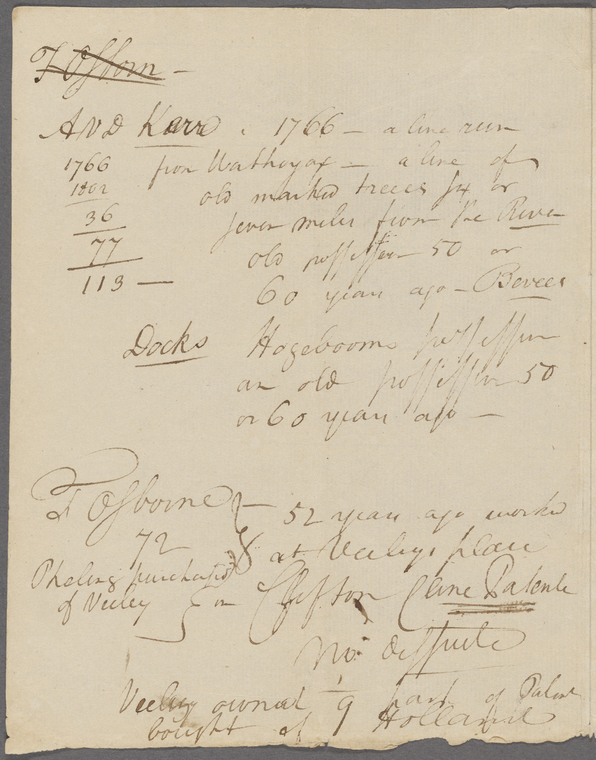 T Osborn —
A V D Karr . 1766 — a line run
1766 from — a line of
1802 old marked trees six or
36 seven miles from the River
77 old possession 50 or
113 — 60 years ago —
Docks Hogebooms possession
an old possession 50
or 60 years ago —
T Osborne — 52 years ago worked
72 at Veeleys place
purchased
of Veeley on Clifton Cline Patente
no dispute
Veeley owned 1/9 part of Patent
bought of Holland